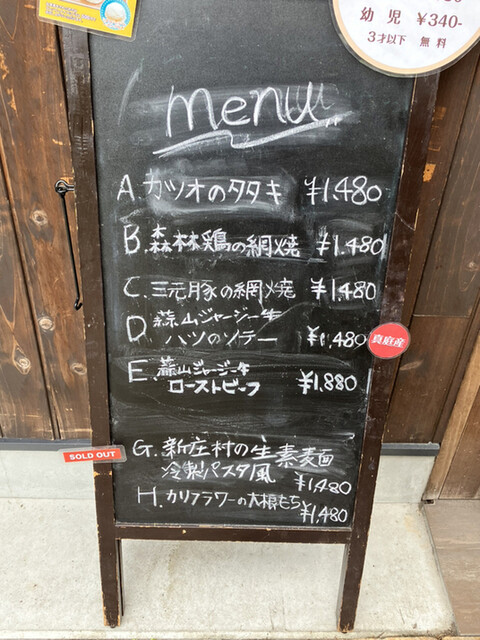 幼児 ¥340-
3才以下 無料
menu
A. カツオのタタキ ¥1.480
B. 森林鶏の網焼 ¥1.480
C. 三元豚の網焼 ¥1,480
D. 蒜山ジャージー牛
ハツのソテー ¥1,480
真庭産
E. 蒜山ジャージー牛
ローストビーフ ¥1.880
G. 新庄村の生素麦面
SOLD OUT
冷製パスタ風 ¥1,480
H. カリフラワーの大根もち
¥1,480